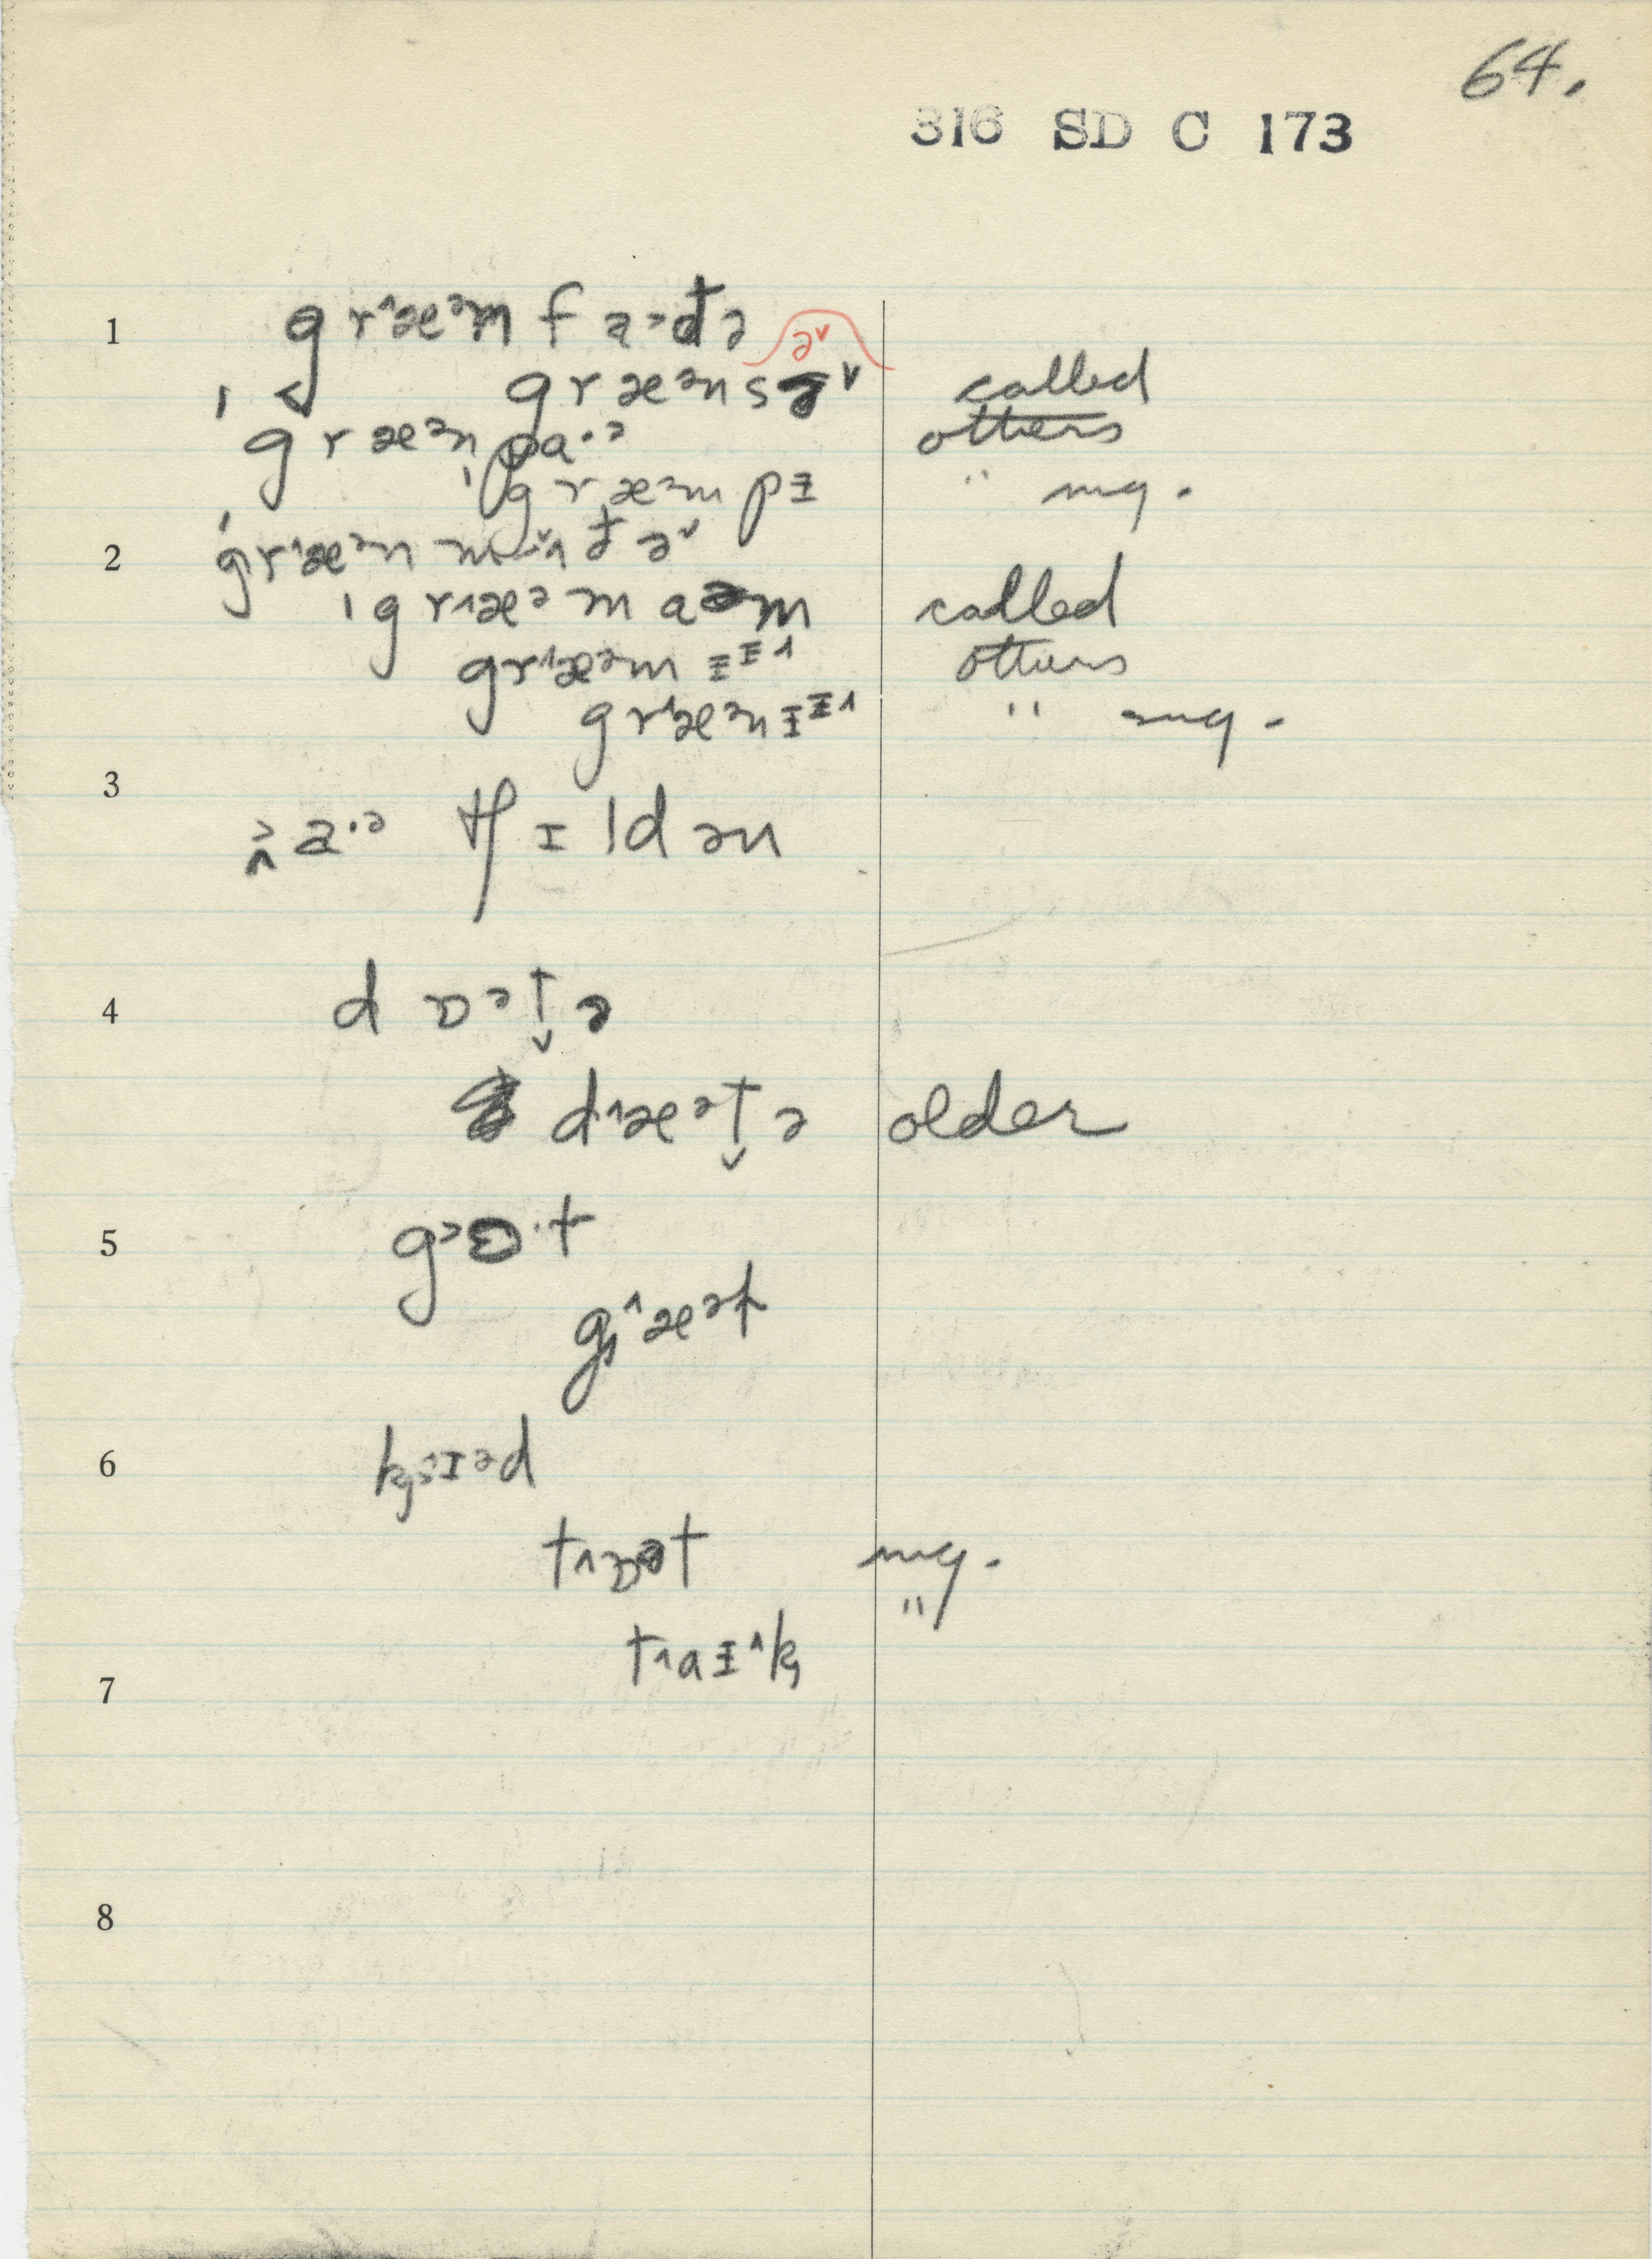 64.
316 SD C 173
1 gr˄æᵊm fa˃đə
ˈgræᵊnsə˅ ə˅ called
græᵊnpa·ᵊ others
ˈgræᵊmpɪ " neg.
2 ˈgr˄æᵊn mʌđə˅
ˈgr˄æᵊm aəm called
gr˄æᵊm ɪɪ˄ others
gr˄æᵊnɪɪ˄ " neg.
3
a·ᵊ tʃɪldən
4 dɒᵊt̬ə
d˄æᵊt̬ə older
5 g˃ɒ·t
g˄æᵊt
6 k˄ɪᵊd
t˄ɒət neg.
t˄aɪ˄k "
7
8